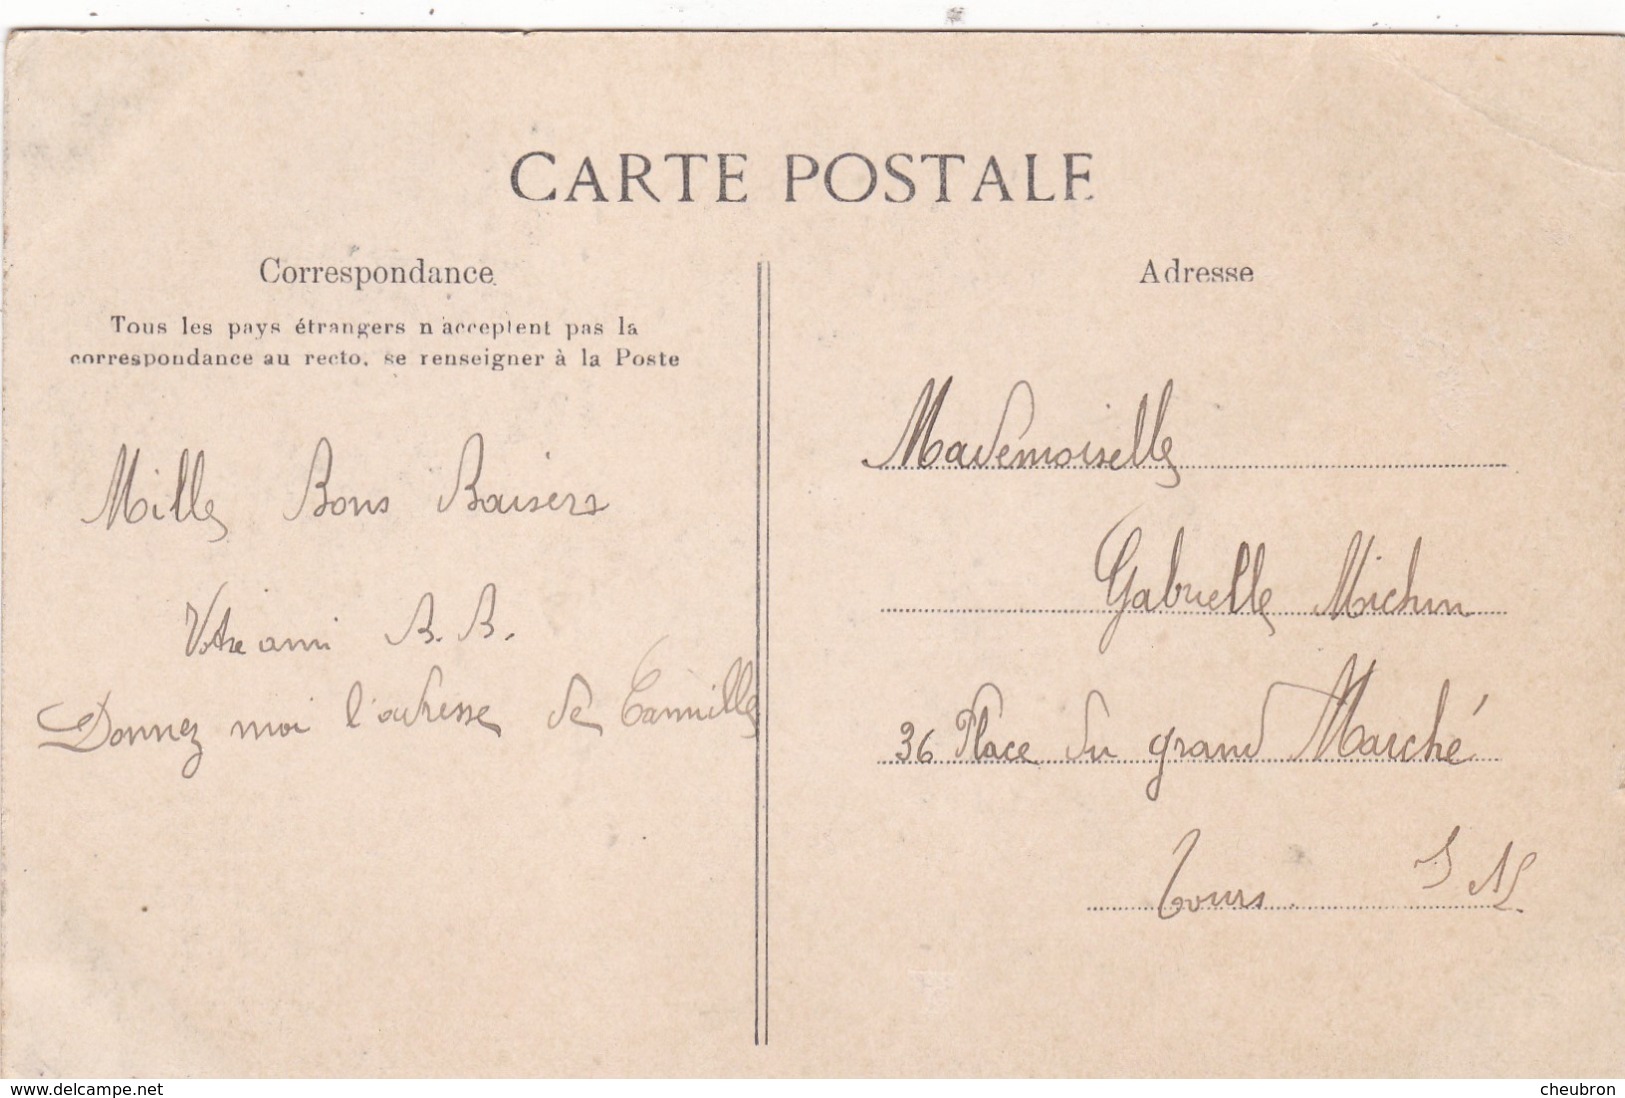 CARTE POSTALE
Correspondance
Tous les pays étrangers n'acceptent pas la
correspondance au recto, se renseigner à la Poste
Mille Bons Baisers
Votre ami B. B.
Donnez moi l'adresse de Camille
Adresse
Mademoiselle
Gabrielle Michin
36 Place du grand Marché
Tours. I L
www.delcampe.net
cheubron